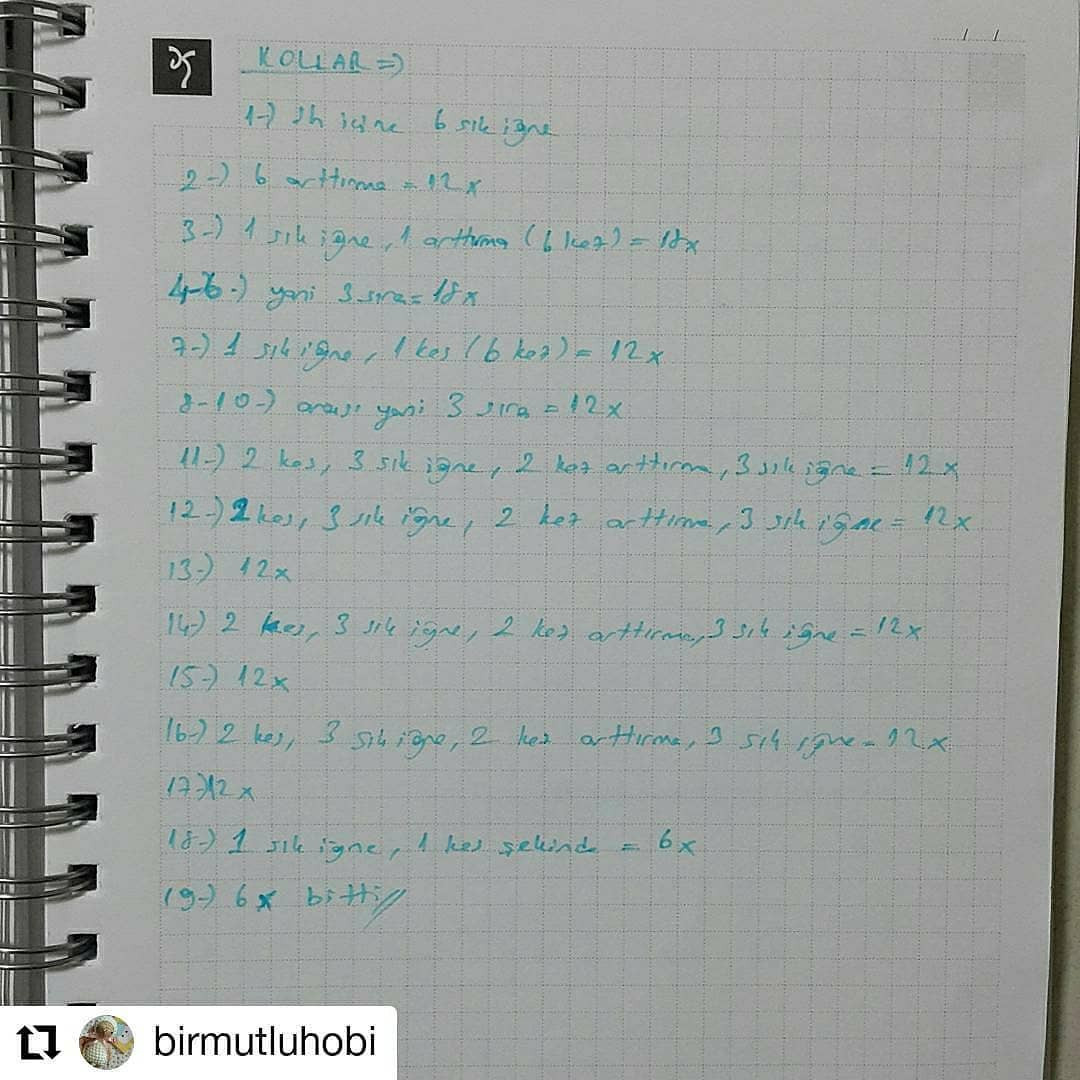 KOLLAR =)
1-) sh içine 6 sık iğne
2-) 6 arttırma = 12x
3-) 1 sık iğne, 1 arttırma (6 kez) = 18x
4-6-) yani 3 sıra = 18x
7-) 1 sık iğne, 1 kes (6 kez) = 12x
8-10-) arası yani 3 sıra = 12x
11-) 2 kes, 3 sık iğne, 2 kez arttırma, 3 sık iğne = 12x
12-) 2 kes, 3 sık iğne, 2 kez arttırma, 3 sık iğne = 12x
13-) 12x
14-) 2 kes, 3 sık iğne, 2 kez arttırma, 3 sık iğne = 12x
15-) 12x
16-) 2 kes, 3 sık iğne, 2 kez arttırma, 3 sık iğne = 12x
17-) 12x
18-) 1 sık iğne, 1 kes şekinde = 6x
19-) 6x bitti//
birmutluhobi